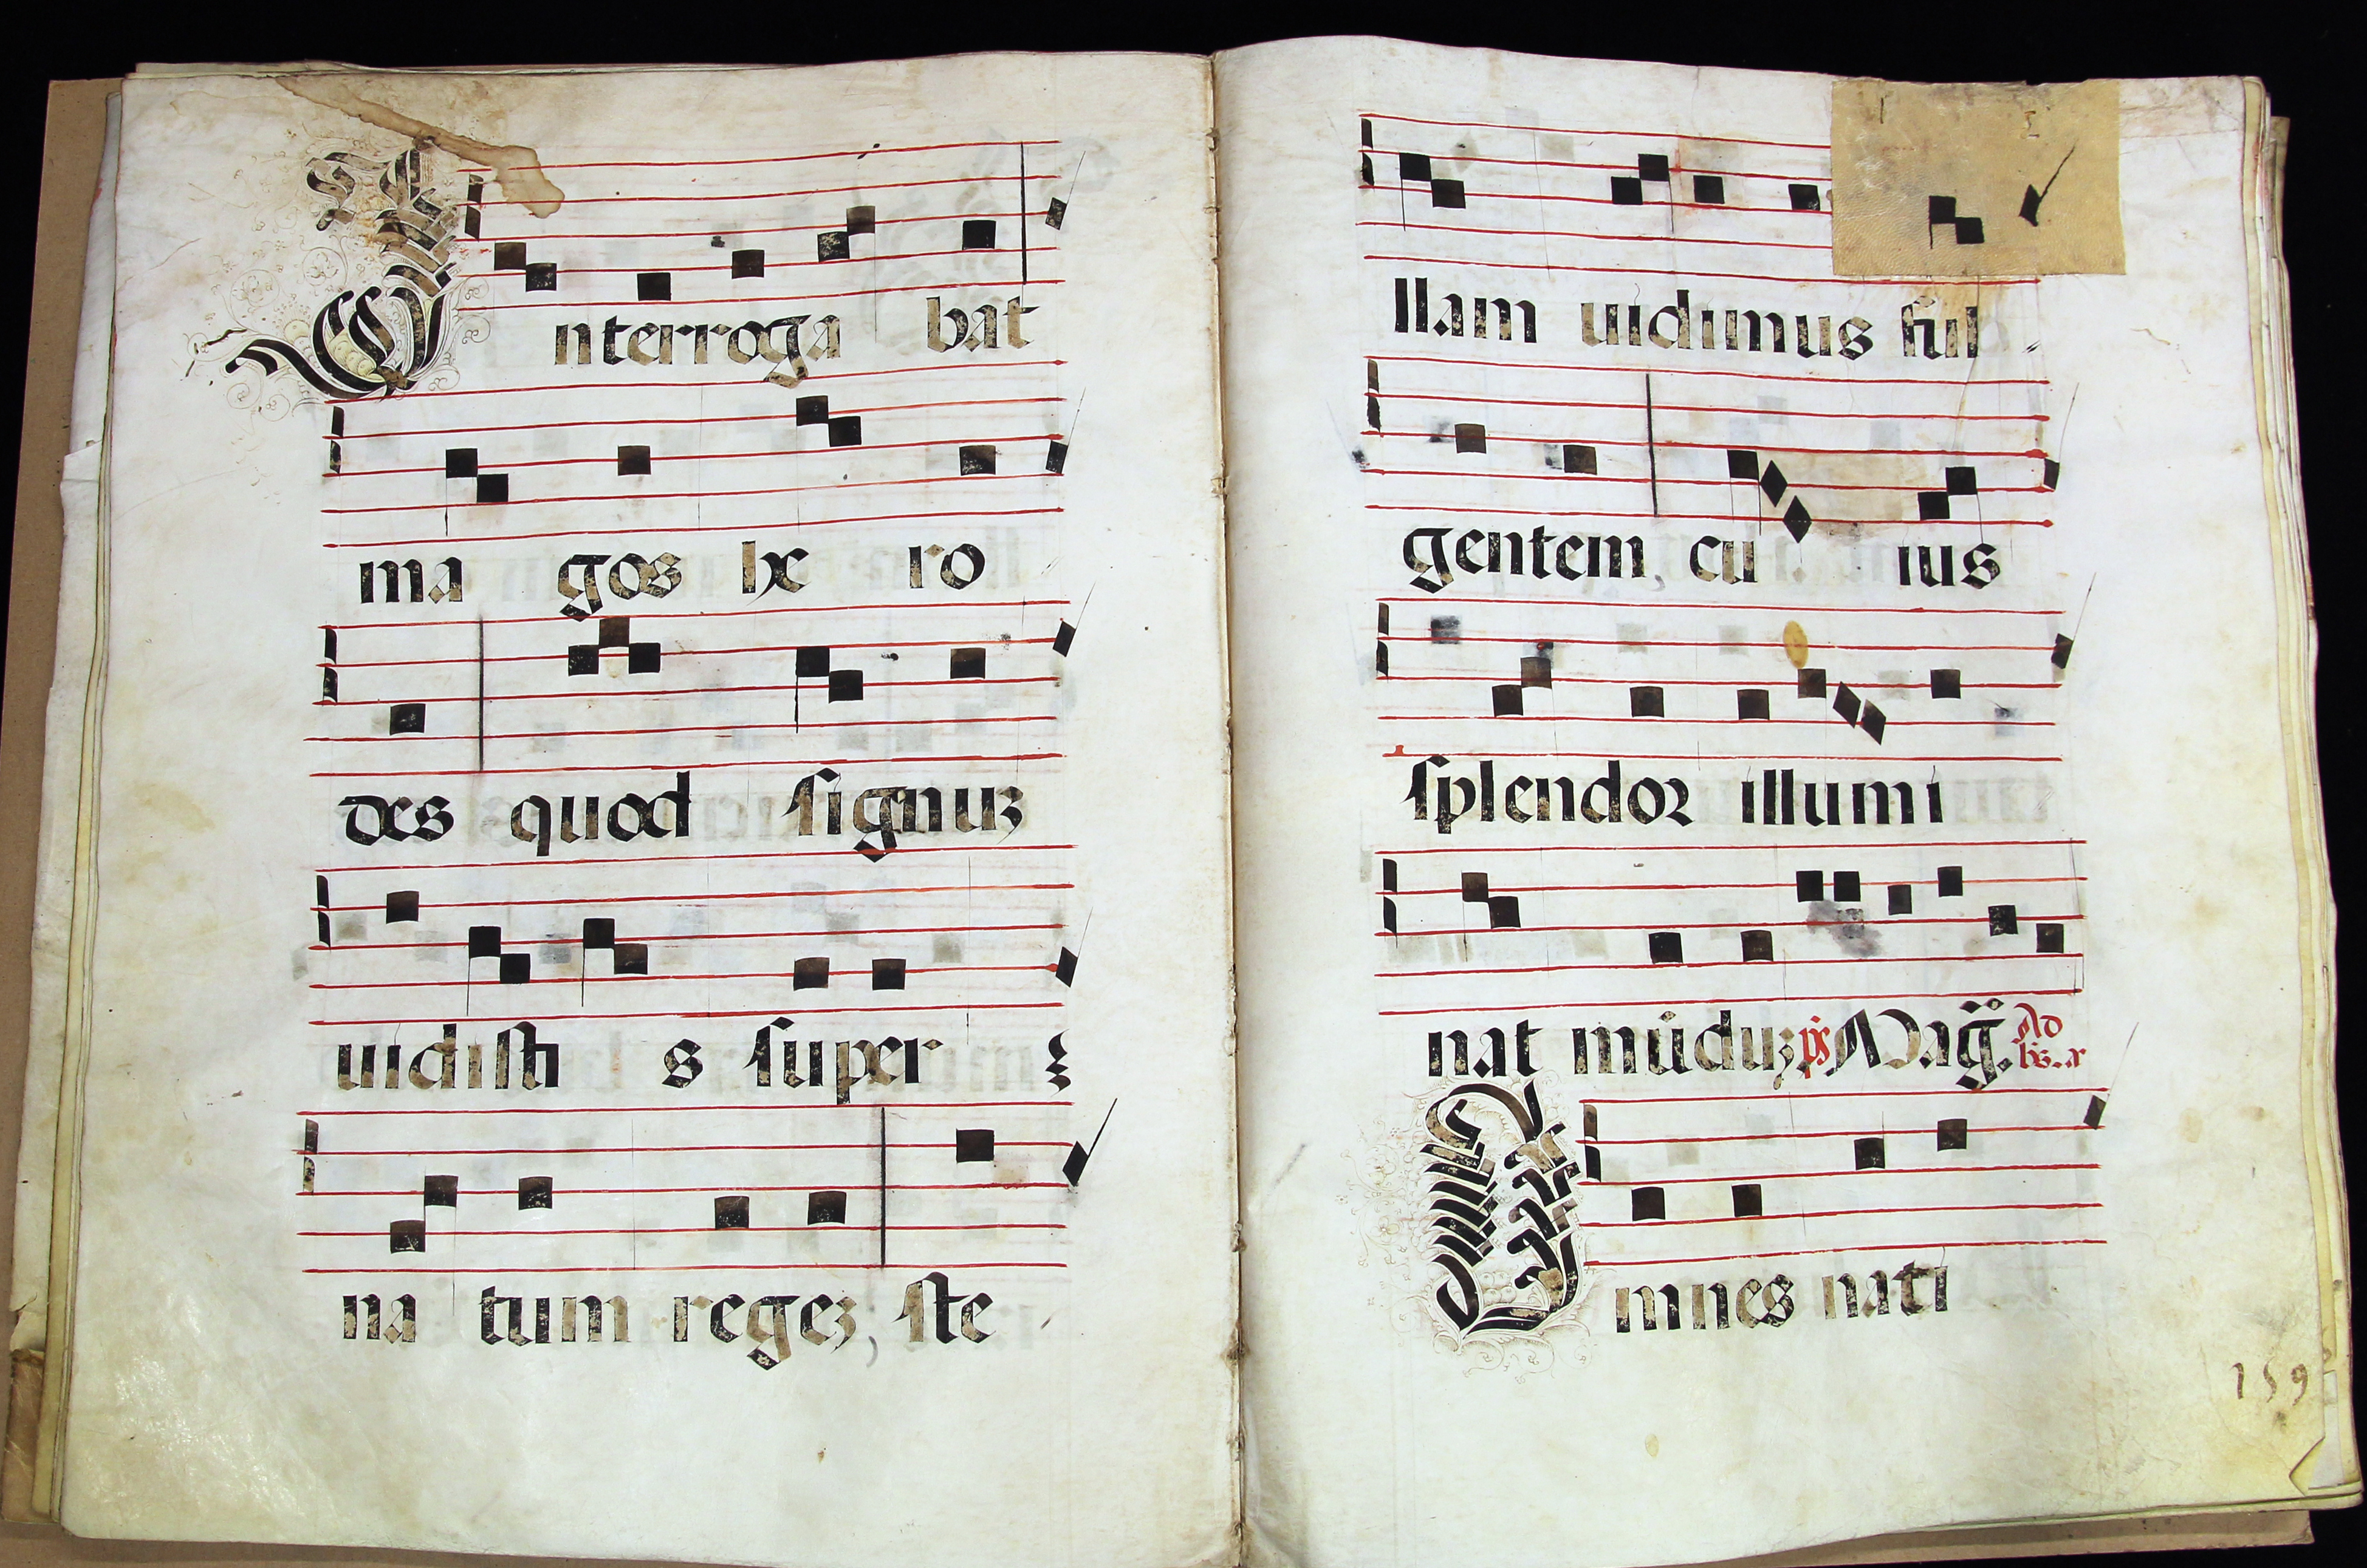 Interroga bat
ma gos he ro
des quod signuz
uidisti s super
na tum regez, ste
llam uidimus ful
gentem, cu ius
splendor illumi
nat mūduz ps Mag̃. Ad
Omnes nati
159